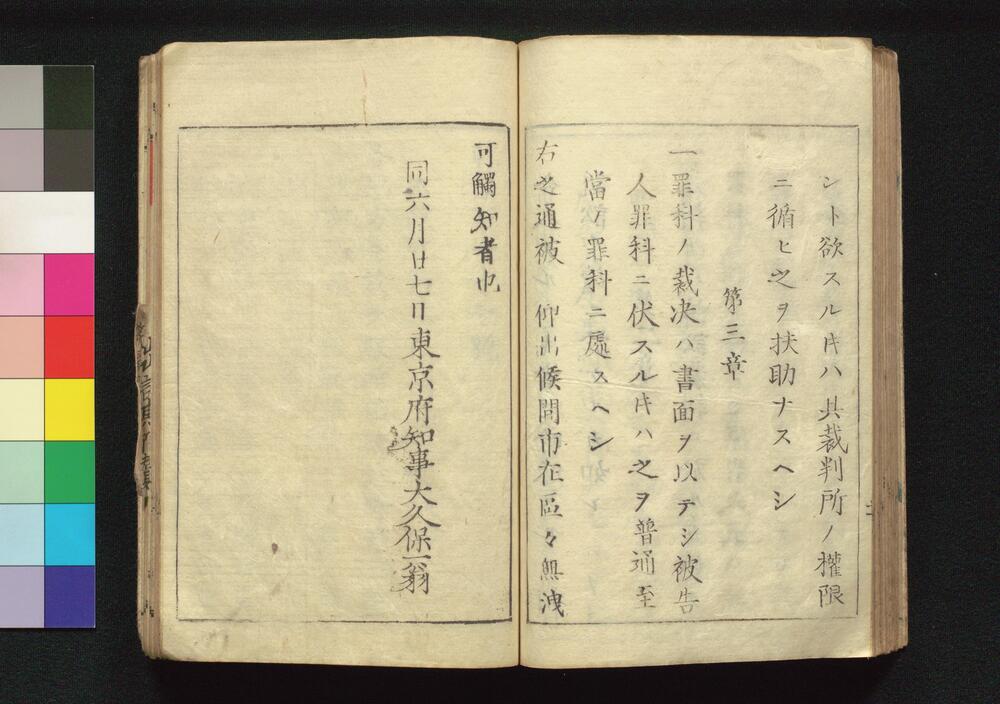 ント欲スルㇳ𪜈ハ其裁判所ノ權限
ニ循ヒ之ヲ扶助ナスヘシ
第三章
一罪科ノ裁决ハ書面ヲ以テシ被告
人罪科ニ伏スル𪜈ハ之ヲ普通至
當ノ罪科ニ處スヘシ
右之通被 仰出候間市在區々無洩
可觸知者也
同六月廿七日東京府知事大久保一翁